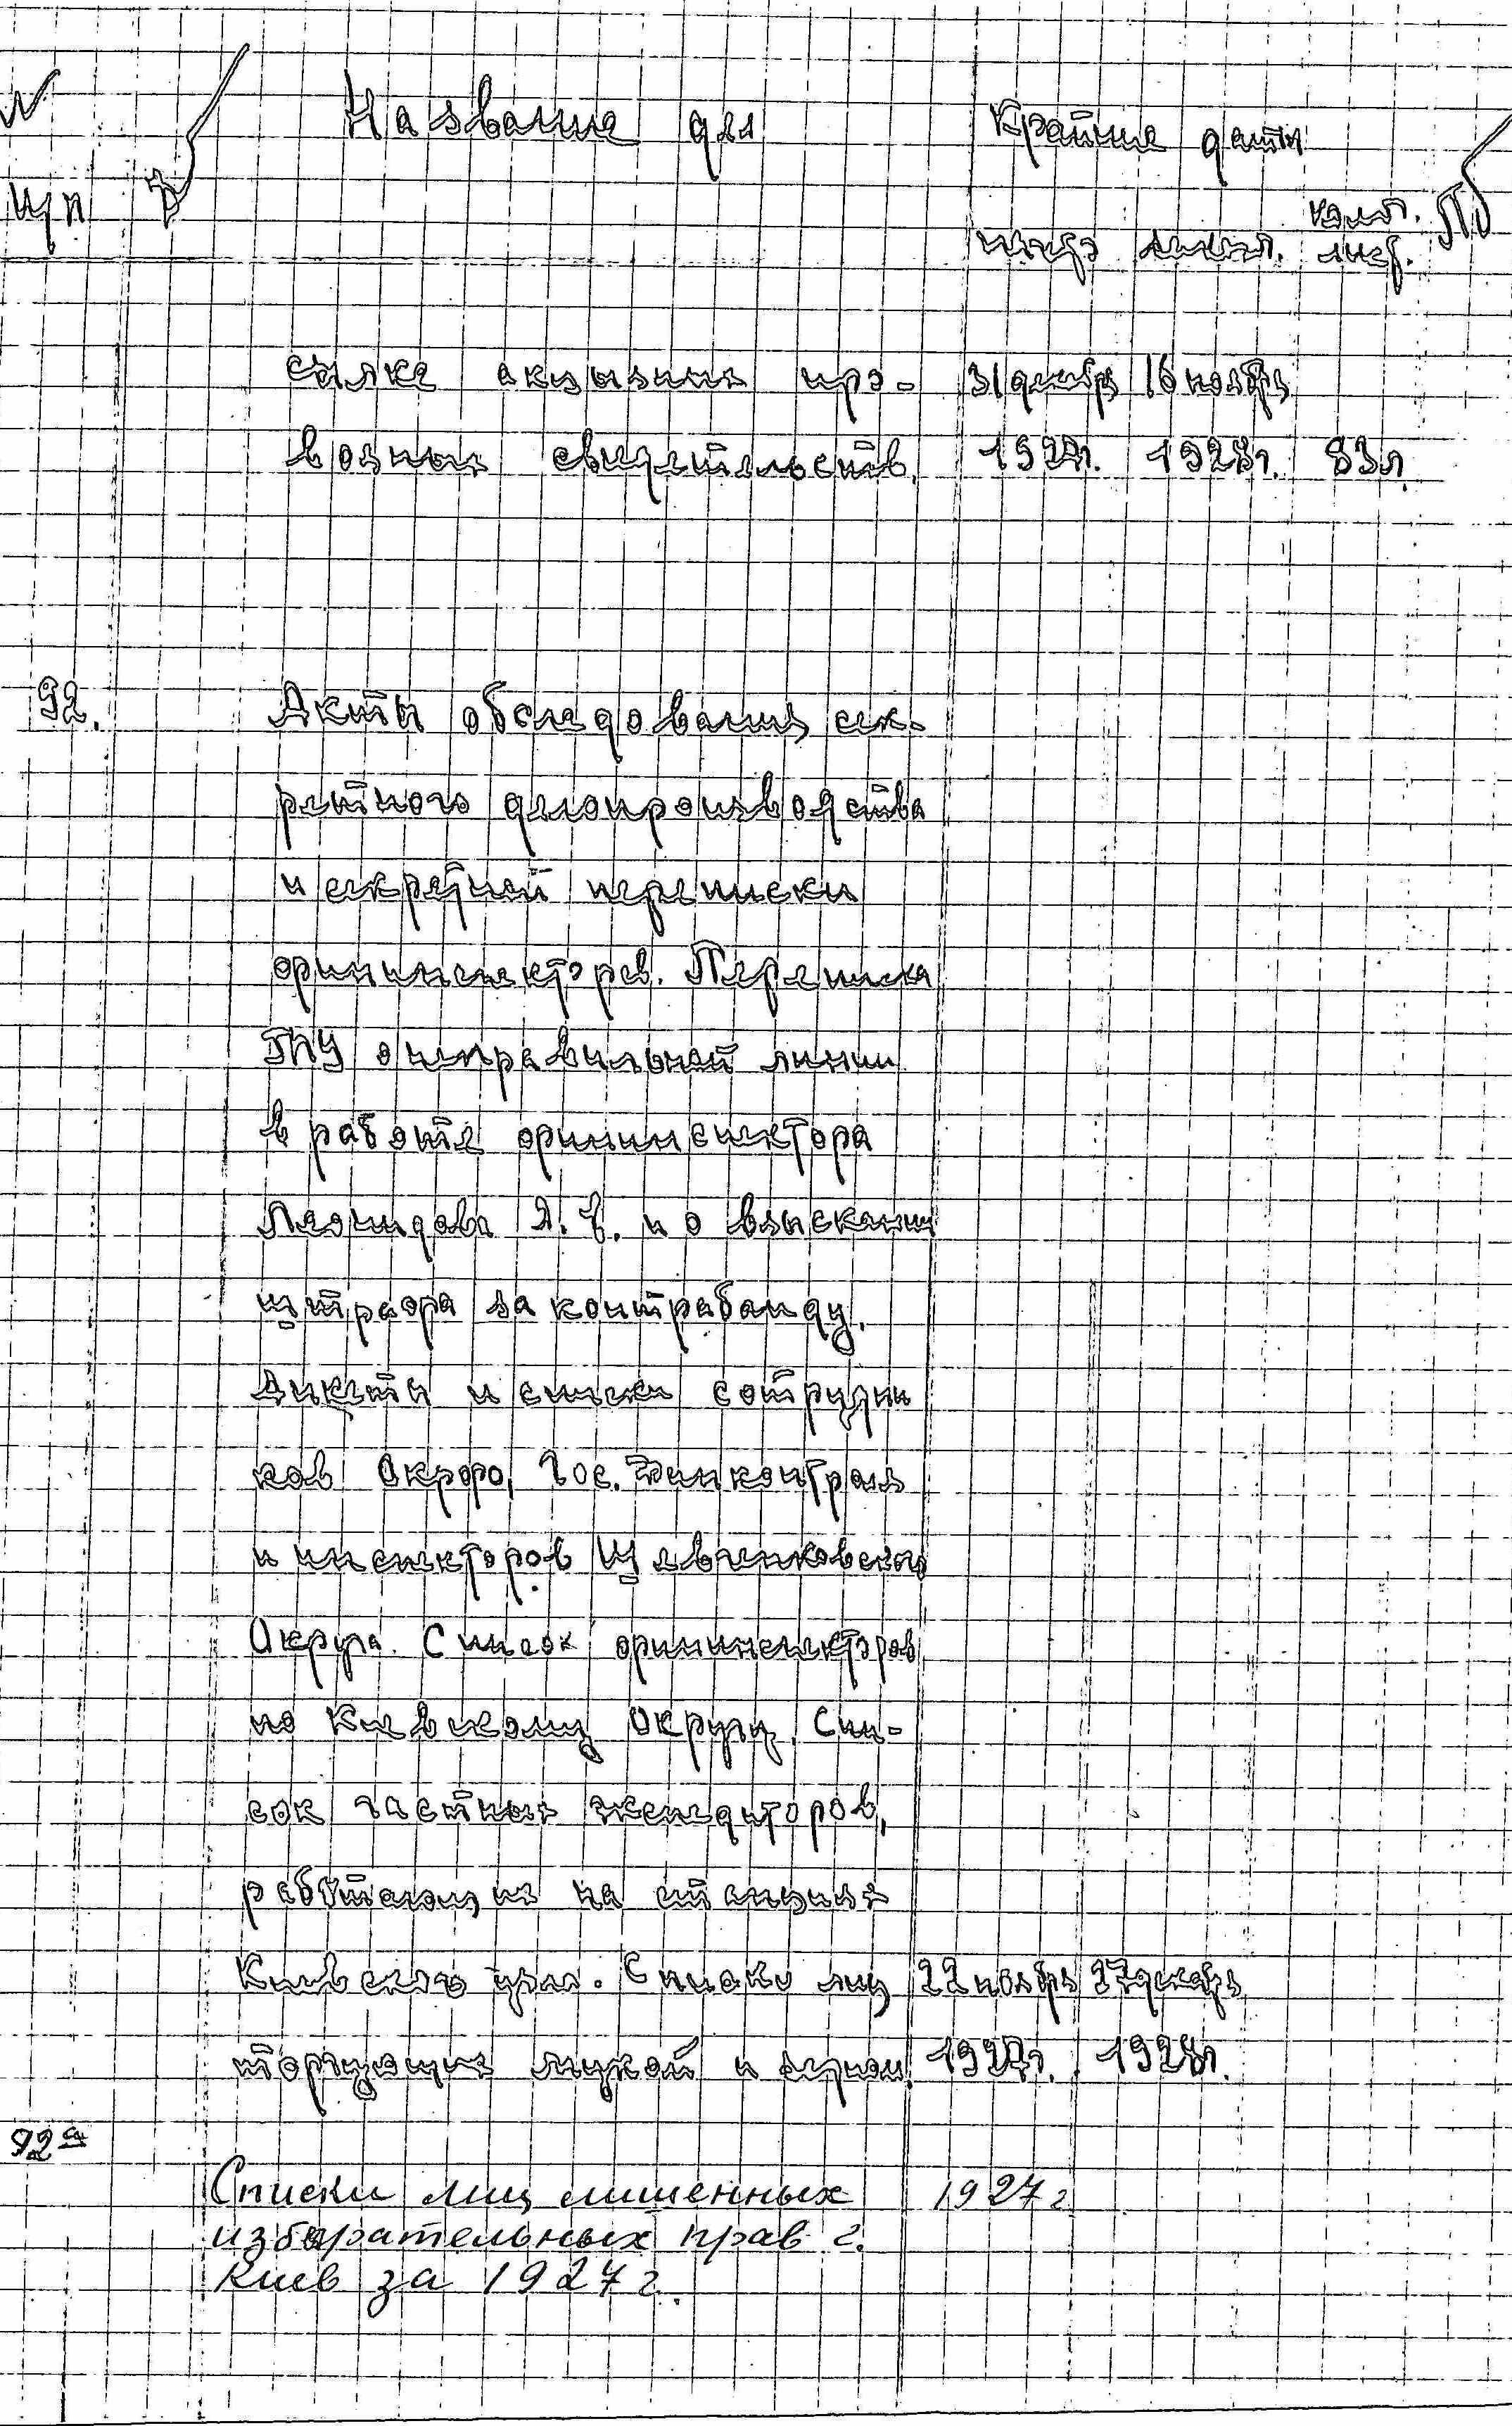 № Название дел Крайние даты
п/п начал. оконч. колич. лист.
сылке акцизных про- 31 декабр 16 ноябр
возных свидетельств. 1927г. 1928г. 83л.
92. Акты обследования сек-
ретного делопроизводства
и секретной переписки
фининспекторов. Переписка
ГПУ о неправильной линии
в работе фининспектора
Леонидова и о взыскании
штрафа за контрабанду.
Анкеты и списки сотрудни
ков Окрфо, Гос. Финконтроля
и инспекторов Шевченковского
Округа. Список фининспекторов
по Киевскому Округу. Спи-
сок частных экспедиторов,
работающих на станциях
Киевского узла. Списки лиц 22 ноябр 27 декабр
торгующих мукой и зерном. 1927г. 1928г.
92а
Списки лиц лишенных 1927г
избирательных прав г.
Киев за 1927г.